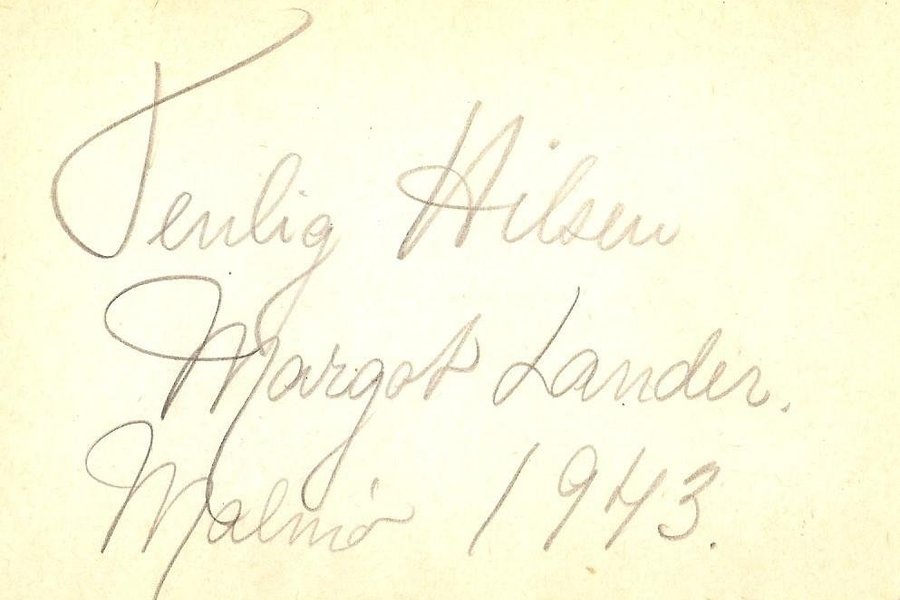 Venlig Hilsen
Margot Lander.
Malmö 1943.